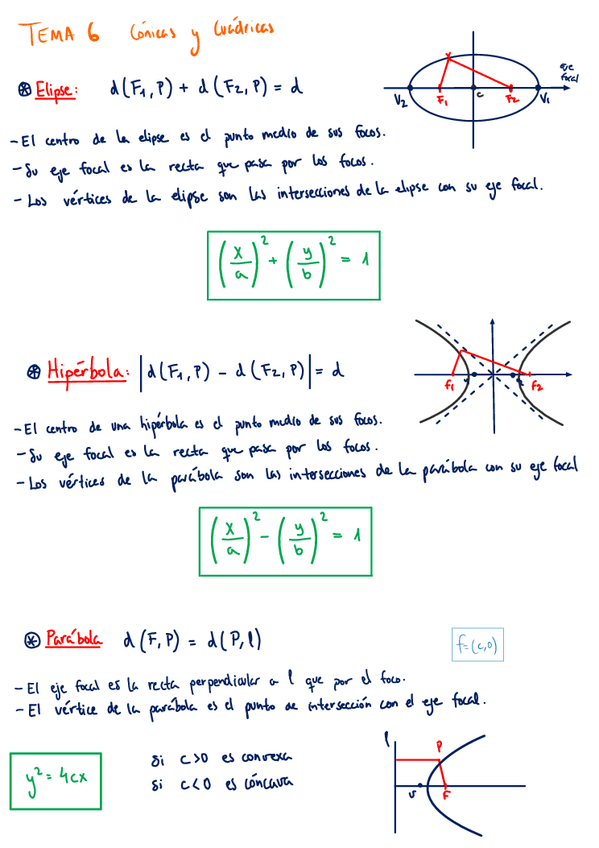 TEMA 6 Cónicas y Cuádricas
⊛ Elipse: d(F₁,P) + d(F₂,P) = d
eje focal
V₂ F₁ c F₂ V₁
- El centro de la elipse es el punto medio de sus focos.
- Su eje focal es la recta que pasa por los focos.
- Los vértices de la elipse son las intersecciones de la elipse con su eje focal.
(x/a)² + (y/b)² = 1
⊛ Hipérbola: |d(F₁,P) - d(F₂,P)| = d
F₁ F₂
- El centro de una hipérbola es el punto medio de sus focos.
- Su eje focal es la recta que pasa por los focos.
- Los vértices de la parábola son las intersecciones de la parábola con su eje focal
(x/a)² - (y/b)² = 1
⊛ Parábola d(F,P) = d(P,l)
F=(c,0)
- El eje focal es la recta perpendicular a l que por el foco.
- El vértice de la parábola es el punto de intersección con el eje focal.
y² = 4cx
Si c>0 es convexa
Si c<0 es cóncava
l P
V F